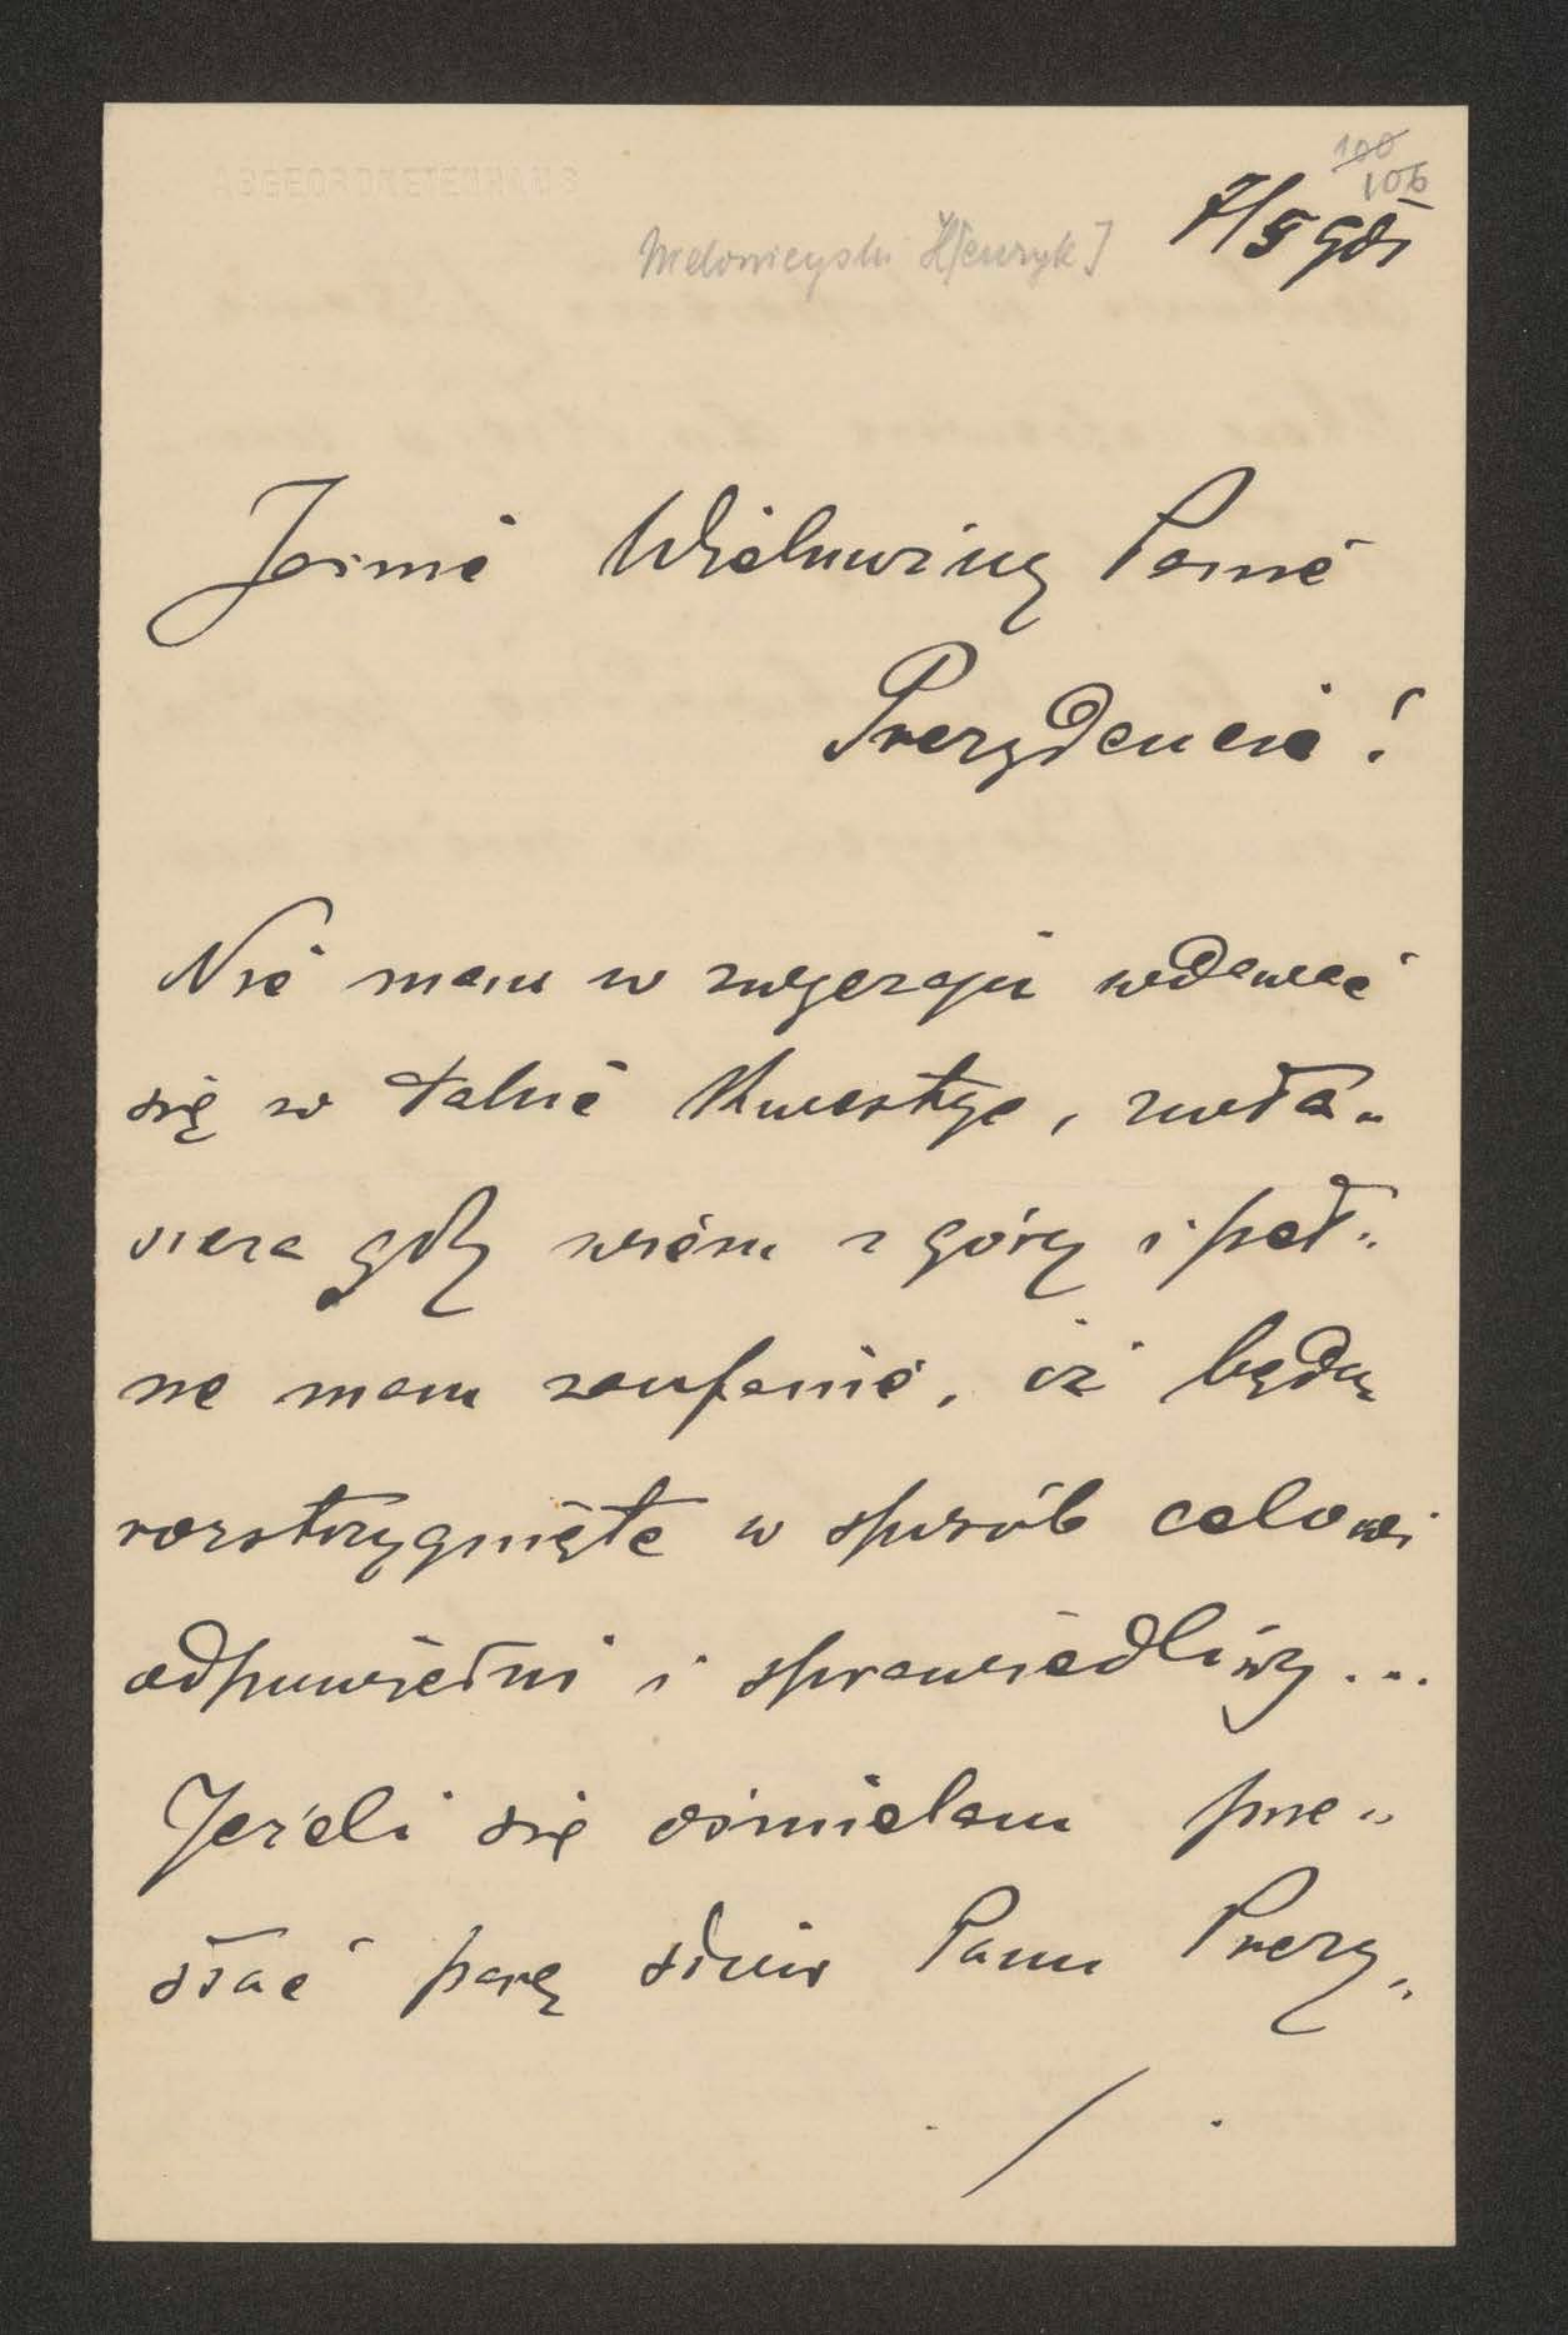 ABGEORDNETENHAUS
100
106
7/5 901
H[enryk]
Jaśnie Wielmożny Panie
Prezydencie!
Nie mam w zwyczaju wdawać
się w takie kwestye, zwła-
szcza gdy wiem z góry i peł-
ne mam zaufanie, iż będą
rozstrzygnięte w sposób celowi
odpowiedni i sprawiedliwy...
Jeżeli się ośmielam prze-
słać parę słów Panu Prezy-
/.